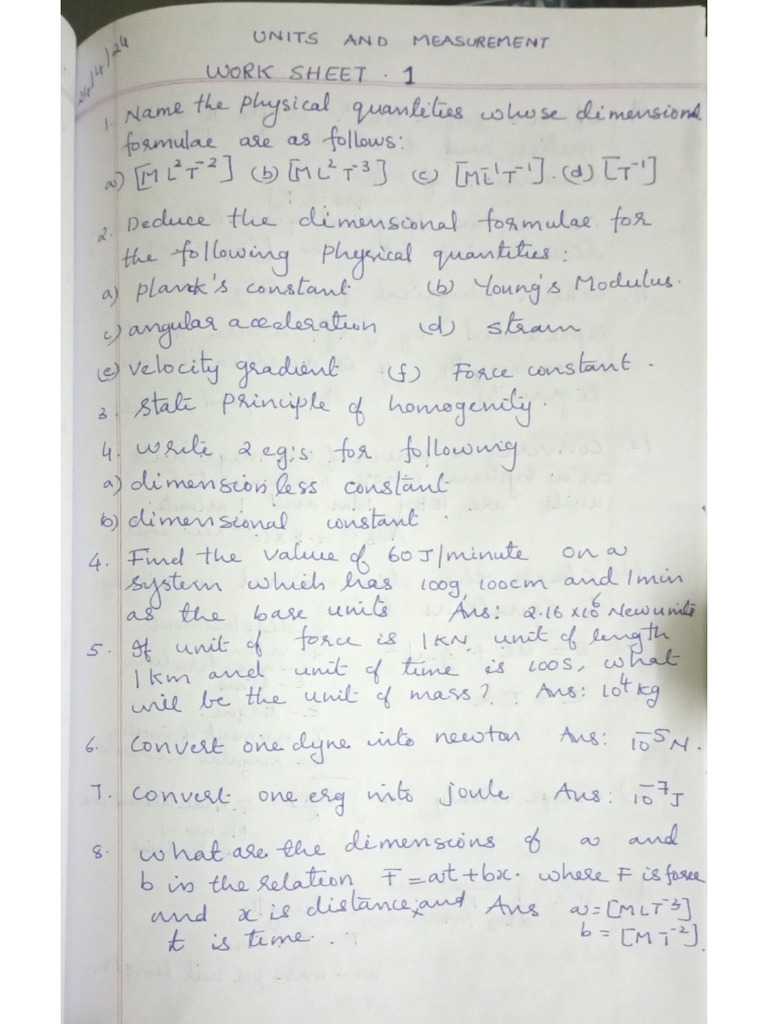 24/4/24
UNITS AND MEASUREMENT
WORK SHEET . 1
1. Name the physical quantities whose dimensional
formulae are as follows:
a) [ML²T⁻²] (b) [ML²T⁻³] (c) [ML⁻¹T⁻¹]. (d) [T⁻¹]
2. Deduce the dimensional formulae for
the following physical quantities:
a) plank's constant (b) Young's Modulus.
c) angular acceleration (d) strain
(e) velocity gradient (f) Force constant.
3. State principle of homogenity.
4. write 2 eg;s for following
a) dimension less constant
b) dimensional constant.
4. Find the value of 60J/minute on a
system which has 100g, 100cm and 1min
as the base units Ans: 2.16 x10⁶ New units
5. If unit of force is 1KN, unit of length
1km and unit of time is 100S, what
will be the unit of mass? Ans: 10⁴ kg
6. Convert one dyne into newton Ans: 10⁻⁵N.
7. Convert one erg into joule Ans: 10⁻⁷J
8. what are the dimensions of a and
b in the relation F=at+bx. where F is force
and x is distance, and Ans a=[MLT⁻³]
t is time. b=[MT⁻²].